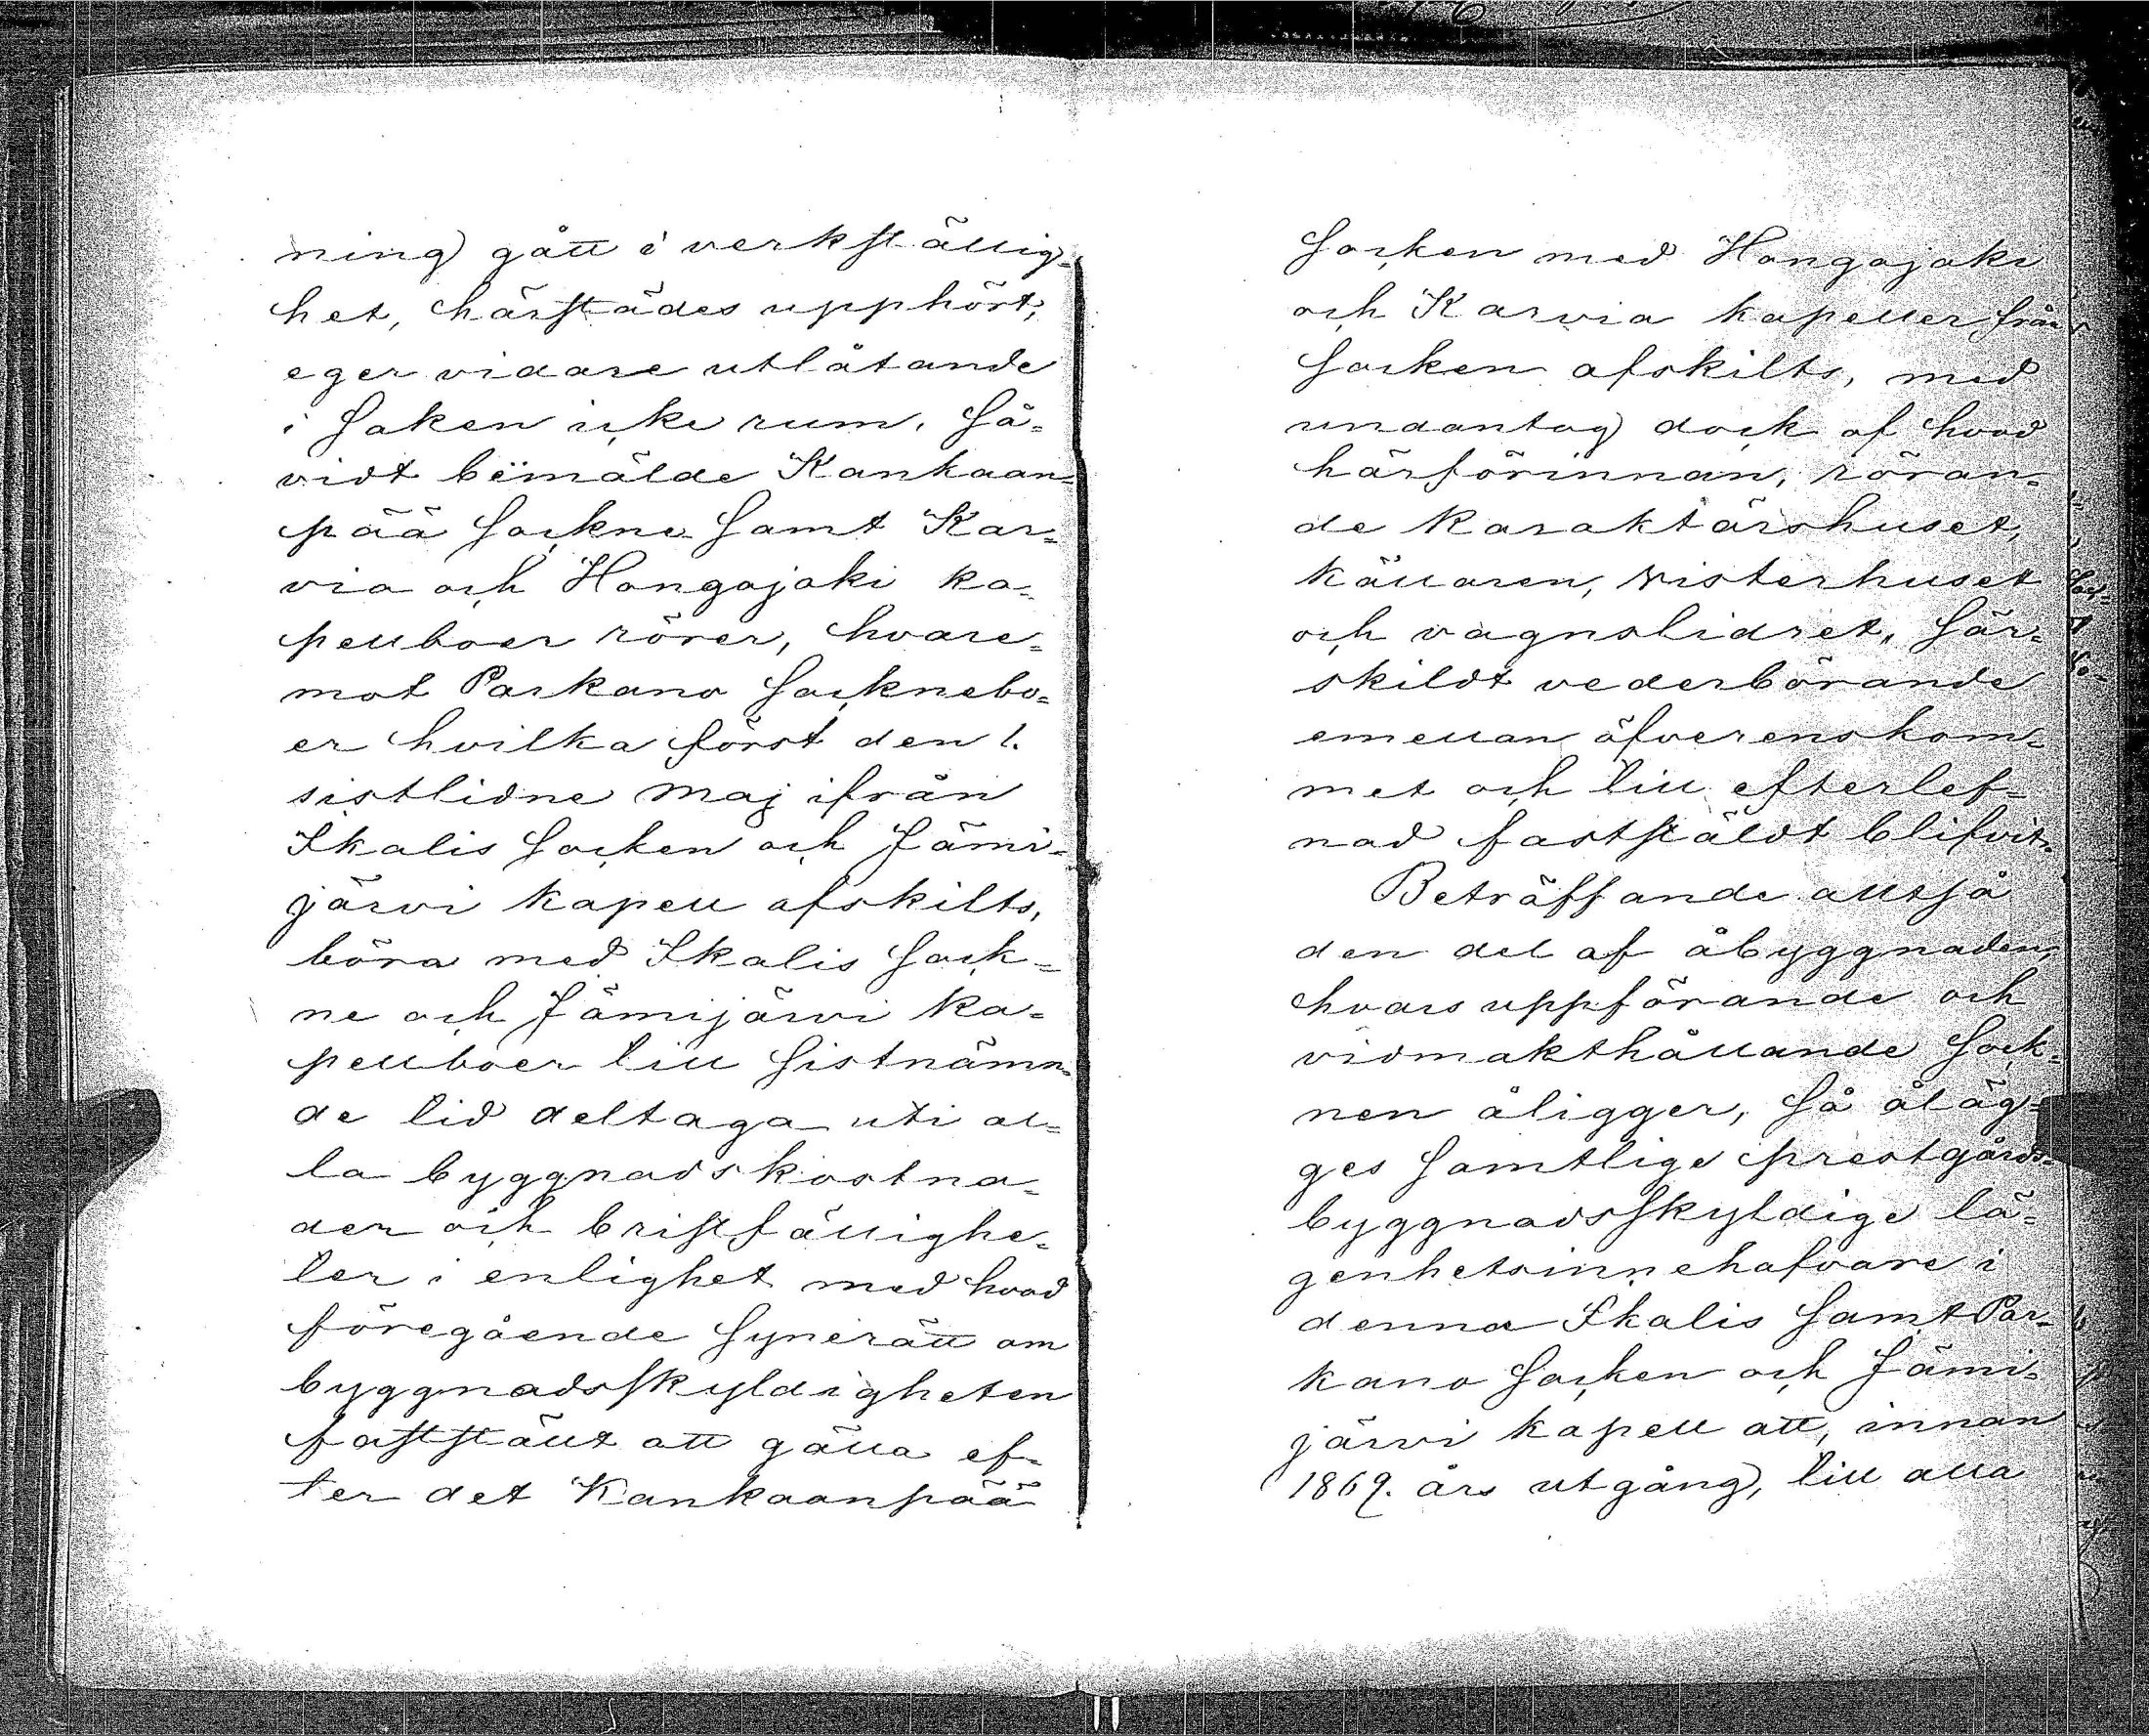 ning) gått i verkställig-
het, härstädes upphört,
eger vidare utlåtande
i saken icke rum, så-
vidt bemälde Kankaan-
pää sockne samt Kar-
via och Hongojoki ka-
pellboer rörer, hvare-
mot Parkano socknebo-
er hvilka först den 1.
sistlidne Maj ifrån
Ikalis socken och Jämi-
järvi kapell afskilts,
böra med Ikalis sock-
ne och Jämijärvi ka-
pellboer till sistnämn-
de tid deltaga uti al-
la byggnadskostna-
der och bristfällighe-
ter i enlighet med hvad
föregående synerätt om
byggnadsskyldigheten
fastställt att gälla ef-
ter det Kankaanpää
socken med Hongojoki
och Karvia kapeller från
socken afskilts, med
undantag dock af hvad
härförinnan, röran-
de karaktärshuset,
källaren, visterhuset
och vagnslidret, sär-
skildt vederbörande
emellan öfverenskom-
met och till efterlef-
nad fastställdt blifvit.
Beträffande alltså
den del af åbyggnaden,
hvars uppförande och
vidmakthållande sock-
nen åligger, så åläg-
ges samtlige prestgårds-
byggnadsskyldige lä-
genhetsinnehafvare i
denna Ikalis samt Par-
kano socken och Jämi-
järvi kapell att, innan
1869. års utgång, till alla